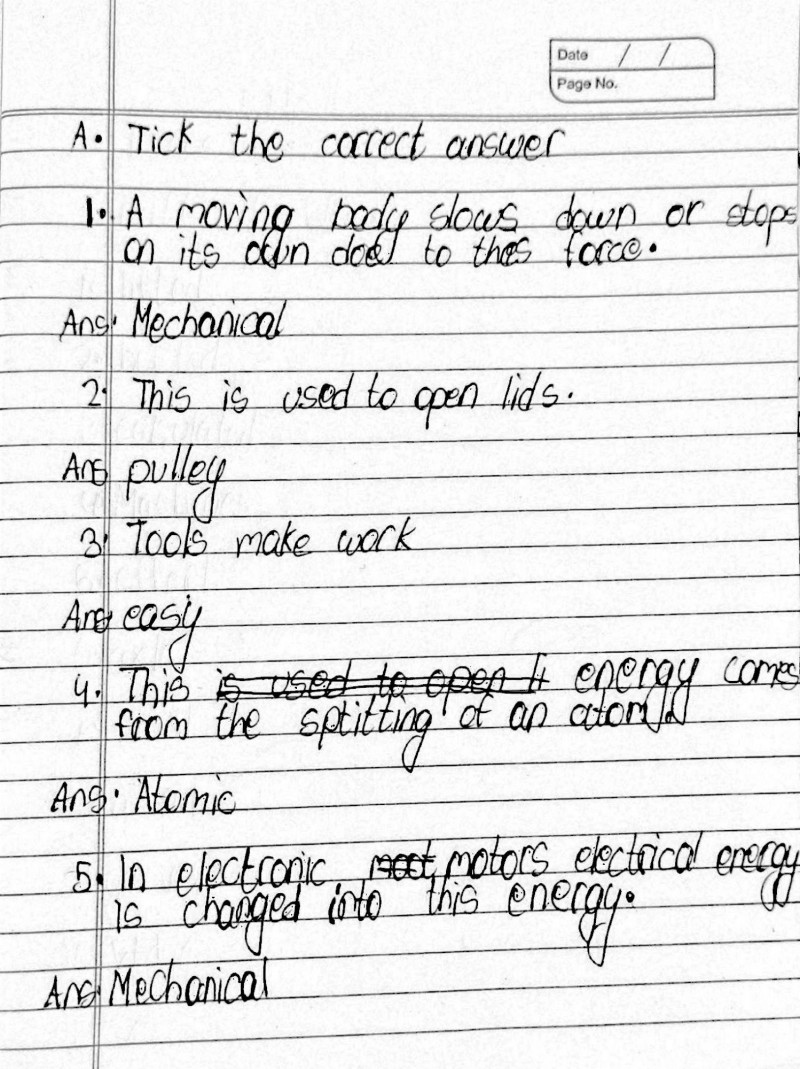 Date / /
Page No.
A. Tick the correct answer
1. A moving body slows down or stops
on its own doe to this force.
Ans. Mechanical
2. This is used to open lids.
Ans pulley
3. Tools make work
Ans easy
4. This is used to open li energy comes
from the sptitting of an atom
Ans. Atomic
5. In electronic moot motors electrical energy
is changed into this energy.
Ans Mechanical